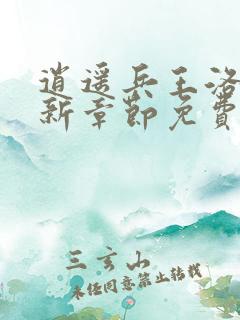 逍遥兵王洛
新章節免費
三玄山
未经同意禁止转载